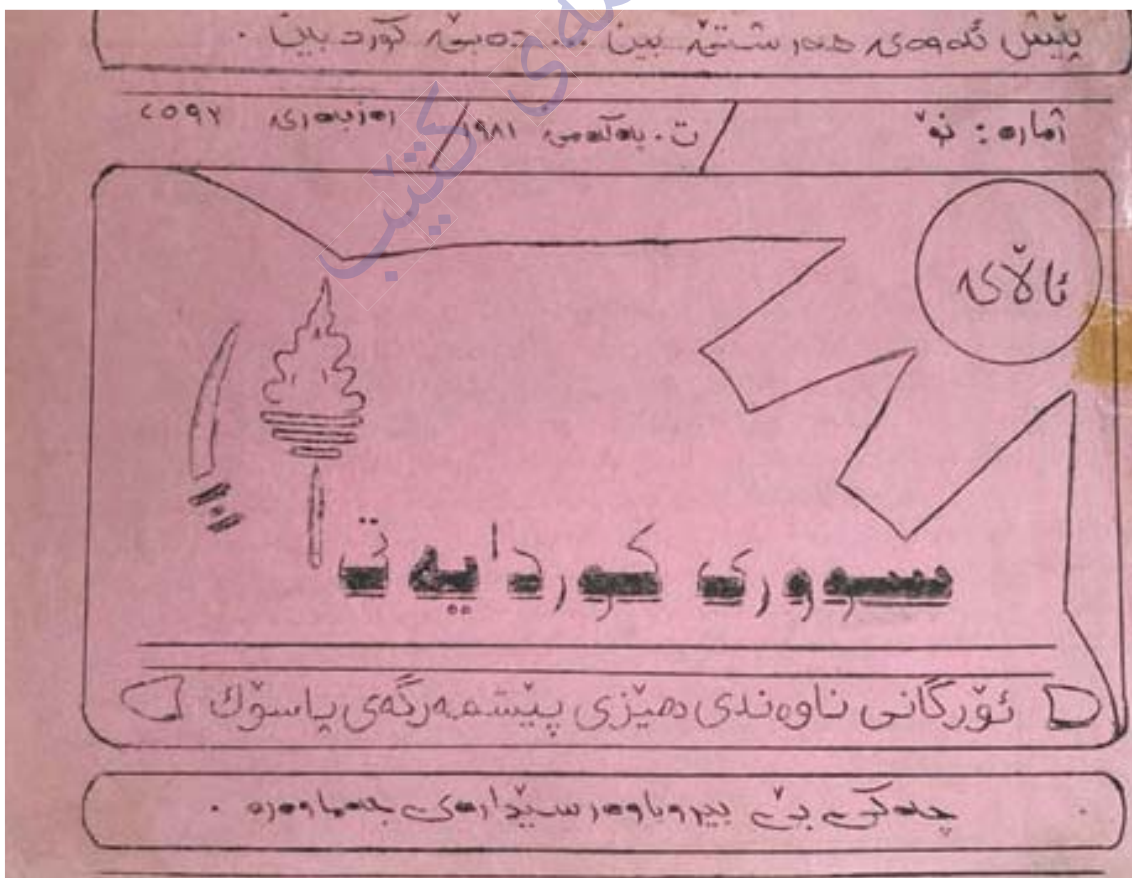 پێش ئەوەی هەر شتێ بین ... دەبێ کورد بین .
ژمارە : نۆ / ت . یەکەمی ١٩٨١ / ڕەزبەری ٢٥٩٢
ئاڵای
سووری کوردایەتی
ئۆرگانی ناوەندی هێزی پێشمەرگەی پاسۆك
چەکی بێ بیروباوەڕ سێدارەی جەماوەرە .